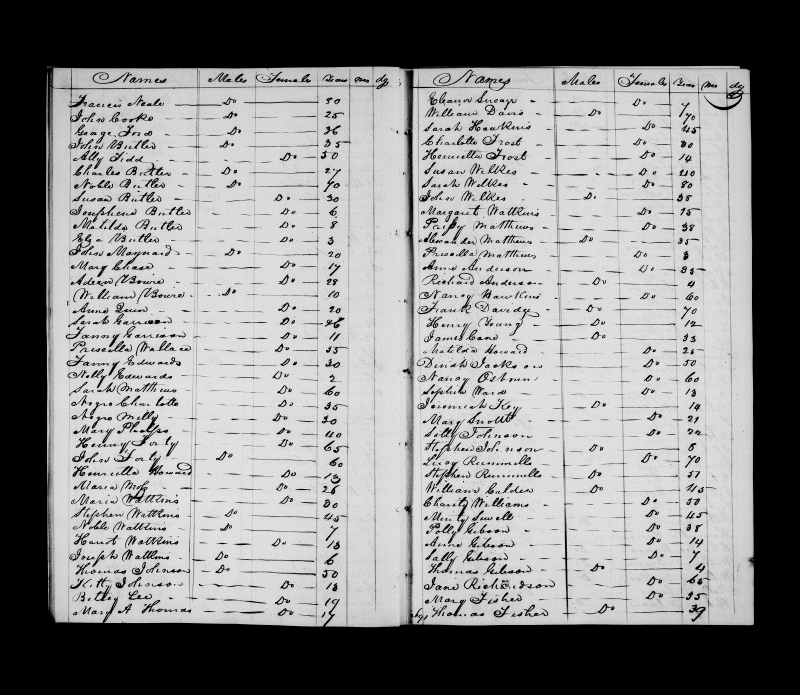 Names Males Females Years ms dys
Francis Neale Do 30
John Cooke Do 25
George Ford Do 36
John Butler Do 35
Ally Tidd Do 50
Charles Butler Do 27
Noble Butler Do 70
Susan Butler Do 30
Josephine Butler Do 6
Matilda Butler Do 8
Eliza Butler Do 3
John Maynard Do 20
Mary Chase Do 17
Do 28
William Do 10
Anna Do 20
Sarah Garrison Do 26
Fanny Garrison Do 11
Priscilla Wallace Do 55
Fanny Edwards Do 30
Nelly Edwards Do 2
Sarah Matthews Do 60
Negro Charlotte Do 35
Negro Milly Do 30
Mary Phelps Do 40
Henny Forty Do 65
John Forty Do 60
Henrietta Howard Do 13
Maria Do 26
Maria Watkins Do 30
Stephen Watkins Do 45
Noble Watkins Do 7
Harriot Watkins Do 13
Joseph Watkins Do 6
Thomas Johnson Do 50
Kitty Johnson Do 13
Betsey Lee Do 19
Mary A Thomas Do 17
Names Males Females Years ms dys
Eleanor Do 7
William Davis Do 70
Sarah Hawkins Do 45
Charlotte Frost Do 30
Henrietta Frost Do 14
Susan Wilkes Do 40
Sarah Wilkes Do 80
John Wilkes Do 38
Margaret Watkins Do 75
Prissy Matthews Do 38
Alexander Matthews Do 35
Priscilla Matthews Do 3
Anna Anderson Do 35
Richard Anderson Do 4
Nancy Hawkins Do 60
Frank Davidge Do 70
Henry Young Do 12
James Cane Do 33
Matilda Howard Do 25
Dinah Jackson Do 50
Nancy Osbourn Do 60
Sophia Ward Do 13
Jeremiah Key Do 14
Mary Do 21
Sally Johnson Do
Stephen Johnson Do 5
Lucy Rummells Do 70
Stephen Rummells Do 51
William Calder Do 45
Charity Williams Do 50
Minty Sewell Do 45
Polly Gibson Do 38
Anna Gibson Do 14
Sally Gibson Do 7
Thomas Gibson Do 4
Jane Richardson Do 65
Mary Fisher Do 35
Thomas Fisher Do 39